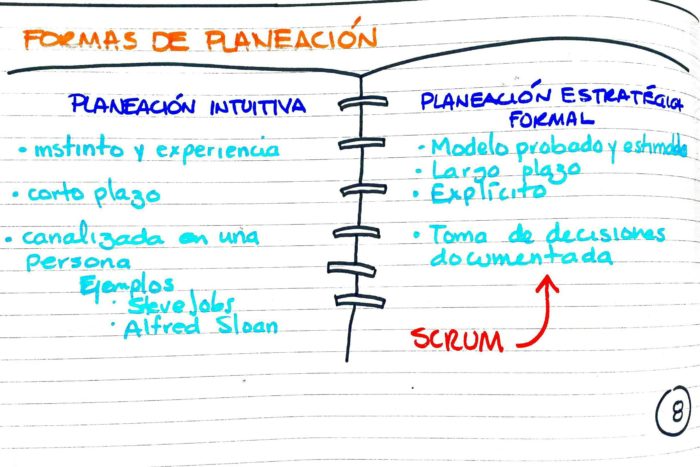 FORMAS DE PLANEACIÓN
PLANEACIÓN INTUITIVA
• instinto y experiencia
• corto plazo
• canalizada en una
persona
Ejemplos
• Steve Jobs
• Alfred Sloan
PLANEACIÓN ESTRATÉGICA
FORMAL
• Modelo probado y estimado
• Largo plazo
• Explícito
• Toma de decisiones
documentada
SCRUM
8